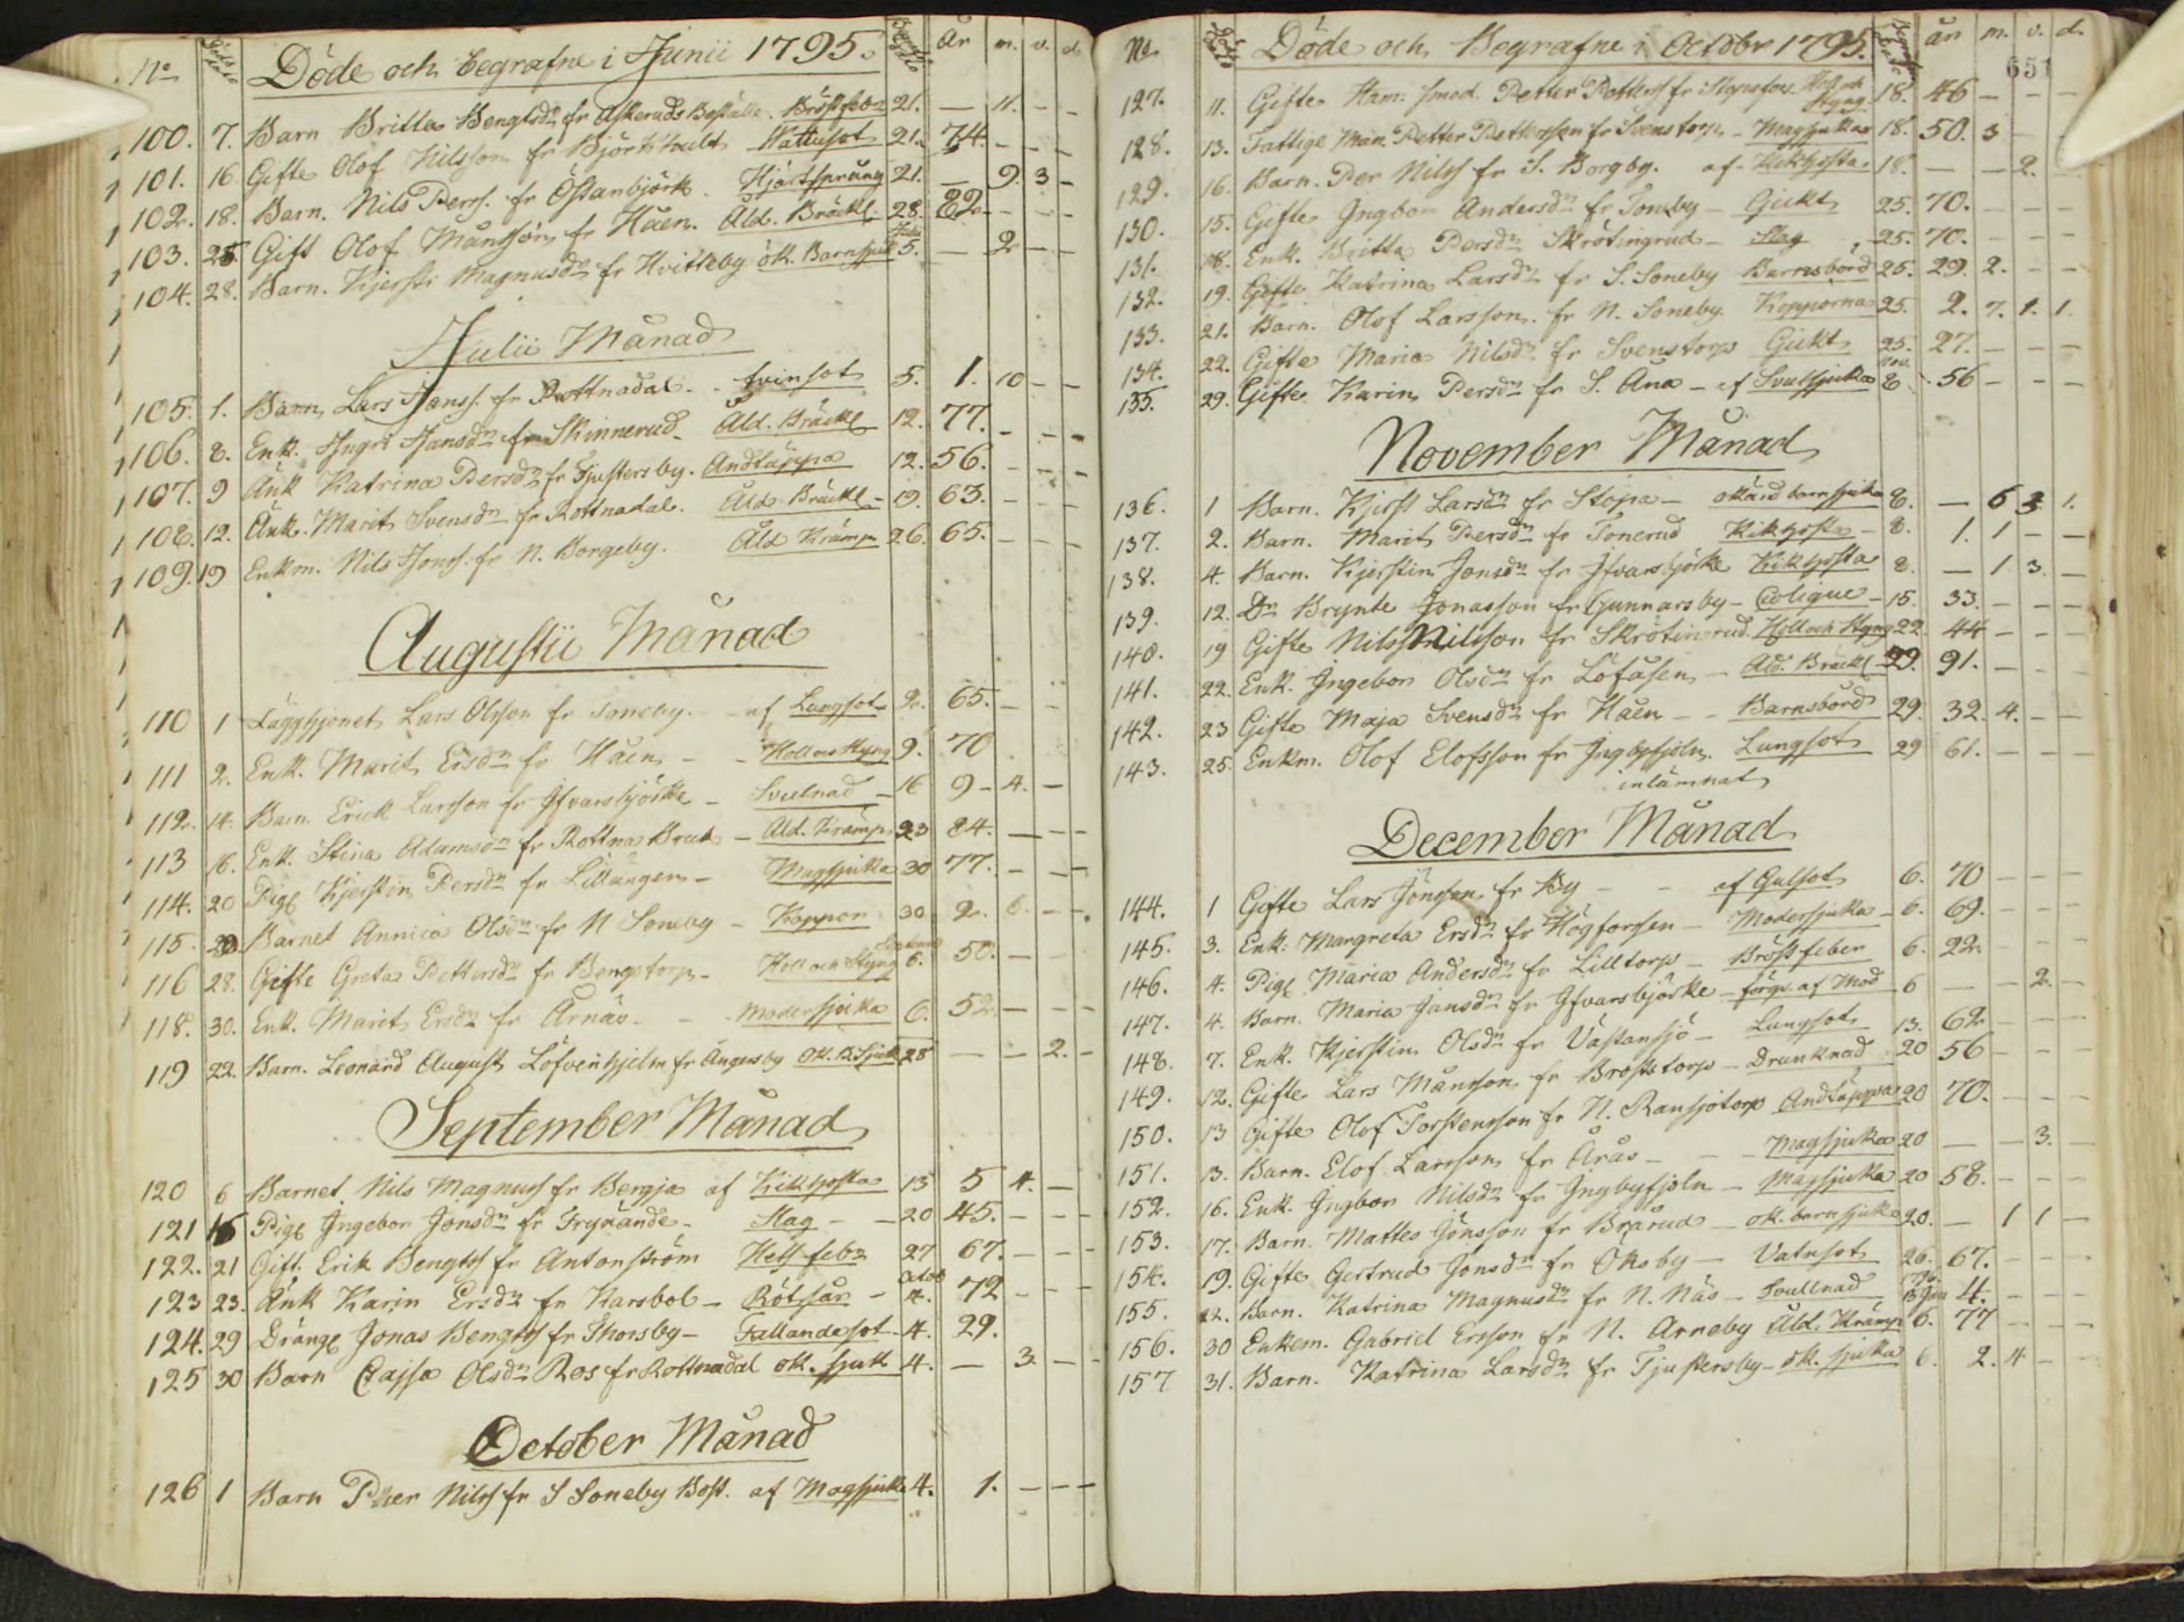 No Döde och begrafne i Junii 1795. år m. v. d.
100. 7. Barn Britta Bengtsdr fr Askeruds Boställe. Bröstfebr 21. — 11. - -
101. 16 Gifte Olof Nilsson fr Björkhult Wattusot 21. 74. - - -
102. 18. Barn. Nils Perss. fr Östanbjörk. Hjärtsprång 21. — 9. 3 -
103. 25 Gift Olof Månsson fr Håen. Åld. Bräckl. 28. 82. - - -
104. 28. Barn. Kjersti Magnusdr fr Hvitteby ok. Barnsjuk Julii 5. — 2 - -
Julii Månad
105. 1. Barn Lars Janss. fr Rottnadal. - tvinsot 5. 1. 10 - -
106. 8. Enk. Ingri Jansdr fr Skinnerud. Åld. Bräckl 12. 77. - - -
107. 9 Änk Katrina Persdr fr Tjustersby. Andtäppa 12. 56. - - -
108. 12. Änk. Marit Svensdr fr Rottnadal. Åld Bräckl - 19. 63. - - -
109. 19 Enkm. Nils Jonss. fr N. Borgeby. Åld Krämp 26. 65. - - -
Augustii Månad
110 1 Lars Olsson fr Soneby. - af Lungsot 2. 65. - - -
111 2. Enk. Marit Ersdr fr Håen - - Håll och Styng 9. 70
112. 14. Barn. Erick Larsson fr Ifvarsbjörke - Svullnad - 16 9 - 4. -
113 16. Enk. Stina Adamsdr fr Rottna Bruk - Åld. Krämp 23 84. — - -
114. 20 Pig. Kjerstin Persdr fr Lillängen - Magsjuka 30 77. - - -
115. 20. Barnet Annica Olsdr fr N Soneby - Koppor 30 2. 6. - -
116 28. Gifte Greta Pettersdr fr Bengstorp - Håll och Styng 6. 50. -
118. 30. Enk. Marit Ersdr fr Årnäs - - Modersjuka 6. 52. — - -
119 22. Barn. Leonard August Löfvenhjelm fr Ängersby ok. B. Sjuk 28 — — 2. -
September Månad
120 6 Barnet Nils Magnuss fr Bergja af Kikhosta 13 5 4. —
121 16 Pig. Ingebor Jonsdr fr Frykände - Slag - - 20 45. - - -
122. 21 Gift. Erik Bengtss fr Antonström Hetsfebr 27 67. - - -
123 23. Änk Karin Ersdr fr Karsbol - Rötsår - Octob 4. 72 - - -
124. 29 Dräng Jonas Bengtss fr Thorsby - Fallandesot - 4. 29.
125 30 Barn Cajsa Olsdr Ros fr Rottnadal ok. sjuk 4. — 3. - -
October Månad
126 1 Barn Per Nilss fr S Soneby Bost. af Magsjuka 4. 1. - - -
No Döde och Begrafne i Octobr 1795. år m. v. d.
651
127. 11. Gifte Ham. smed. Petter Petterss fr Håll och Styng 18. 46 - - -
128. 13. Fattige Man. Petter Pettersson fr Svenstorp - Magsjuka 18. 50. 3 - -
129. 16. Barn. Per Nilss fr S. Borgby. af - Kikhosta - 18. — — 2.
130. 15. Gifte Ingbor Andersdr fr Toneby - Gickt 25. 70. - - -
131. 18. Enk. Britta Persdr Skrötingrud - Slag 25. 70. - - -
132. 19. Gifte Katrina Larsdr fr S. Soneby Barnsbörd 25. 29. 2. - -
133. 21. Barn. Olof Larsson. fr N. Soneby. Kopporna 25. 2. 7. 1. 1.
134. 22. Gifte Maria Nilsdr fr Svenstorp Gickt 25. 27. - - -
135. 29. Gifte Karin Persdr fr S. Åna - af Svulsjuka Nov. 8 56 - - -
November Månad
136. 1 Barn. Kjerst Larsdr fr Stopa - okänd barnsjuka 8. — 6 3. 1.
137. 2. Barn. Marit Persdr fr Tonerud Kikhosta - 8. 1. 1 — —
138. 4. Barn. Kjerstin Jonsdr fr Ifvarsbjörke Kikhosta 8. — 1 3. —
139. 12. Dr Brynte Jonasson fr Gunnarsby - Colique - 15. 33. - - -
140. 19 Gifte Nils Nilsson fr Skrötinrud. Håll och Styng 22. 44 - - -
141. 22. Enk. Ingebor Olsdr fr Löfåsen - Åld. Bräckl 29. 91. - - -
142. 23 Gifte Maja Svensdr fr Håen - - Barnsbörd 29. 32. 4. - -
143. 25. Enkm. Olof Elofsson fr Ingbyfjoln. Lungsot 29 61. - - -
inlämnat
December Månad
144. 1 Gifte Lars Jönsson fr By - - af Gulsot 6. 70 - - -
145. 3. Enk. Margreta Ersdr fr Högforsen - Modersjuka - 6. 69. - - -
146. 4. Pig. Maria Andersdr fr Lilltorp - Bröstfeber 6. 22. - - -
147. 4. Barn. Maria Jansdr fr Ifvarsbjörke - förqv. af Mod 6 — — 2. —
148. 7. Enk. Kjerstin Olsdr fr Västansjö - Lungsot 13. 62 - - -
149. 12. Gifte Lars Månsson fr Brostorp - Drunknad 20 56 - - -
150. 13 Gifte Olof Torstensson fr N. Ransjötorp Andtäppa 20 70. - - -
151. 13. Barn. Elof Larsson fr Årås - - - Magsjuka 20 — — 3. —
152. 16. Enk. Ingbor Nilsdr fr Ingbyfjoln - Magsjuka 20 58. - - -
153. 17. Barn. Mattes Jönsson fr Brårud - ok. barnsjuka 20. — 1 1 —
154. 19. Gifte Gertrud Jonsdr fr Oksby - Vatusot 26. 67. - - -
155. 22. Barn. Katrina Magnusdr fr N. Näs - Svullnad 1796. Jan 4. - - -
156. 30 Enkem. Gabriel Ersson fr N. Arneby Åld. Krämp 6. 77 - - -
157 31. Barn. Katrina Larsdr fr Tjustersby - ok. sjuka 6. 2. 4 - -